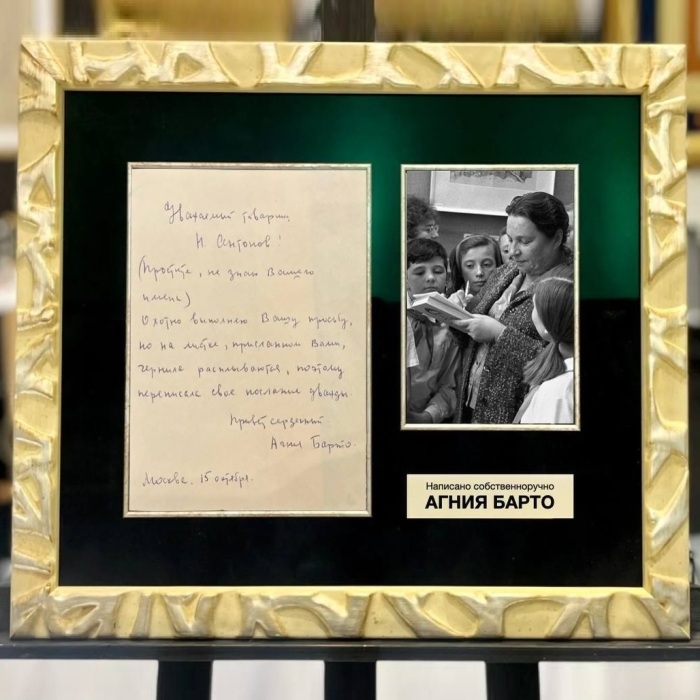 Уважаемый товарищ
Н. Антонов!
(Простите, не знаю Вашего
имени)
Охотно выполняю Вашу просьбу,
но на листке, присланном Вами,
чернила расплываются, поэтому
переписала свое послание дважды.
Привет сердечный
Агния Барто.
Москва, 15 октября.
Написано собственноручно
АГНИЯ БАРТО